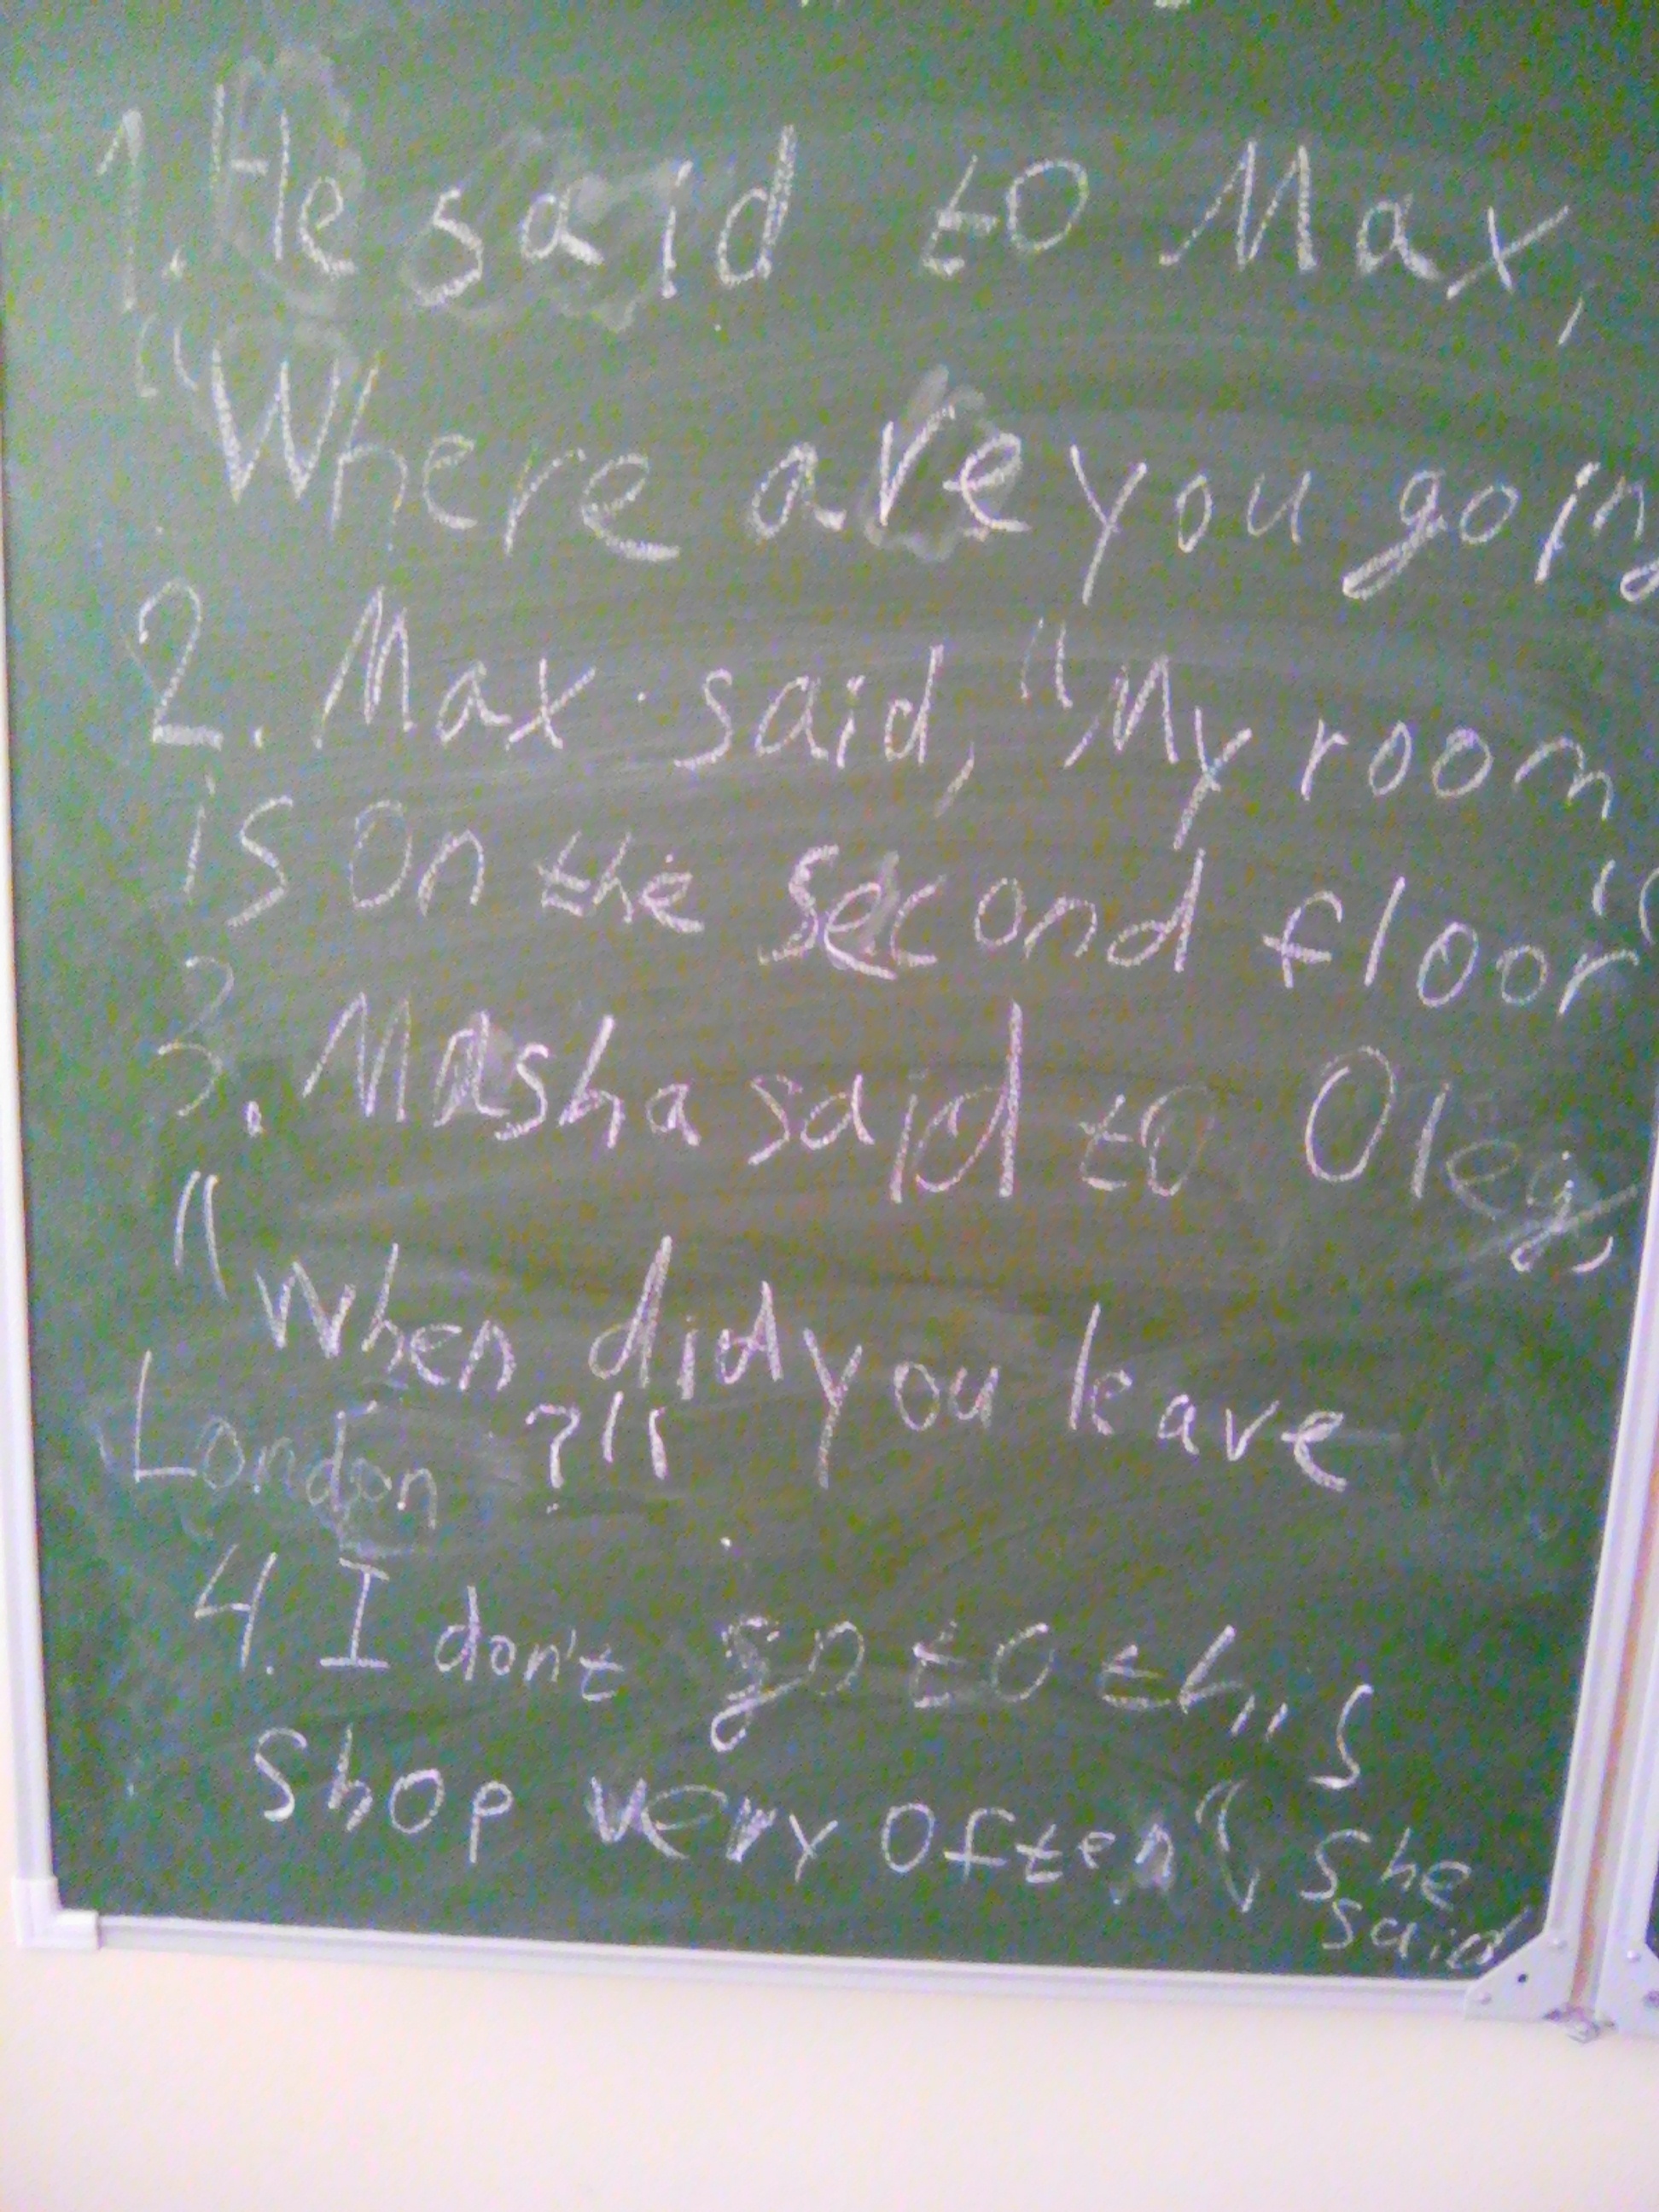 1. He said to Max,
"Where are you going
2. Max said, "My room
is on the second floor"
3. Masha said to Oleg,
"When did you leave
London ?"
4. I don't go to this
Shop very often" She
said